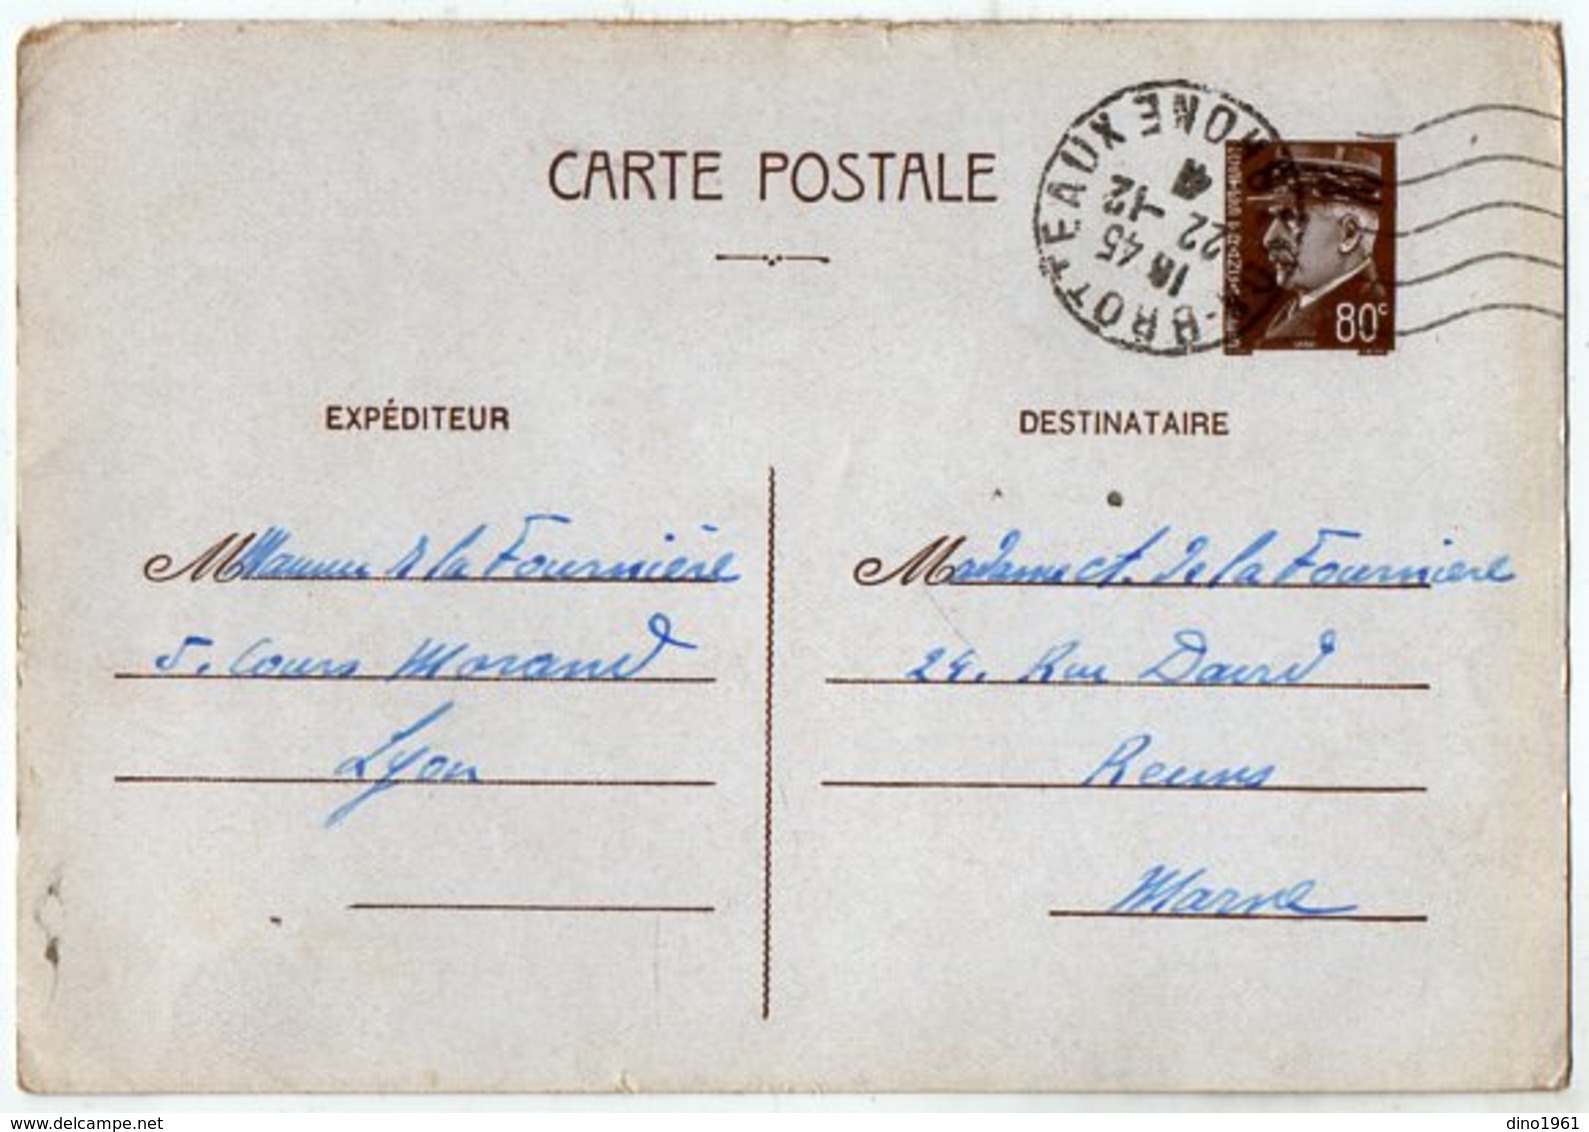 CARTE POSTALE
BROTTEAUX RHONE
18 45
22 -12
41
80c
EXPÉDITEUR
DESTINATAIRE
de la Fournière
5. Cours Morand
Lyon
Madame Ct. de la Fourniere
24. Rue David
Reims
Marne
dino1961